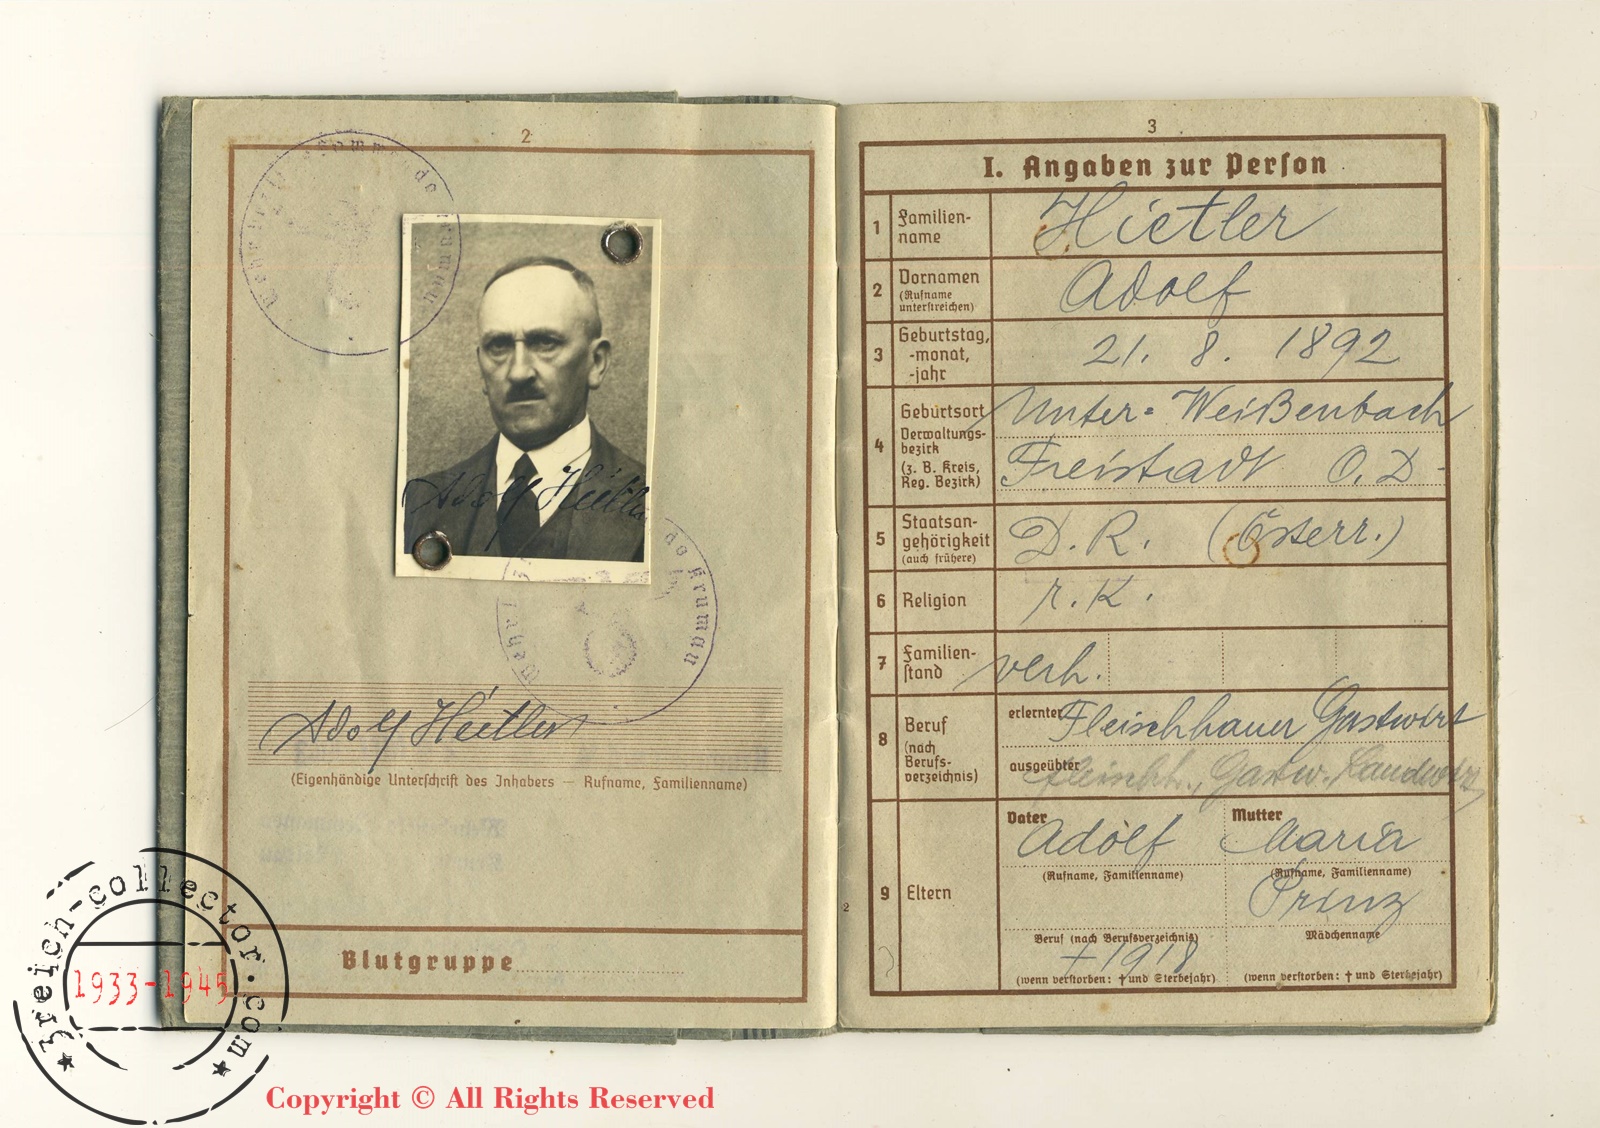 2
Wehrbezirkskommando
Krumau
Adolf Hietler
Krumau
Adolf Hietler
(Eigenhändige Unterschrift des Inhabers — Rufname, Familienname)
Blutgruppe
3
I. Angaben zur Person
1 Familien-
name
Hietler
2 Vornamen
(Rufname
unterstreichen)
Adolf
3 Geburtstag,
-monat,
-jahr
21. 8. 1892
4 Geburtsort
Verwaltungs-
bezirk
(z. B. Kreis,
Reg. Bezirk)
Unter-Weißenbach
Freistadt O. D.
5 Staatsan-
gehörigkeit
(auch frühere)
D. R. (Österr.)
6 Religion
r. K.
7 Familien-
stand
verh.
8 Beruf
(nach
Berufs-
verzeichnis)
erlernter Fleischhauer Gastwirt
ausgeübter Fleischh., Gastw. Landwirt
9 Eltern
Vater
Adolf
(Rufname, Familienname)
Beruf (nach Berufsverzeichnis)
† 1918
(wenn verstorben: † und Sterbejahr)
Mutter
Maria
(Rufname, Familienname)
Prinz
Mädchenname
(wenn verstorben: † und Sterbejahr)
2
3reich-collector.com
1933-1945
Copyright © All Rights Reserved